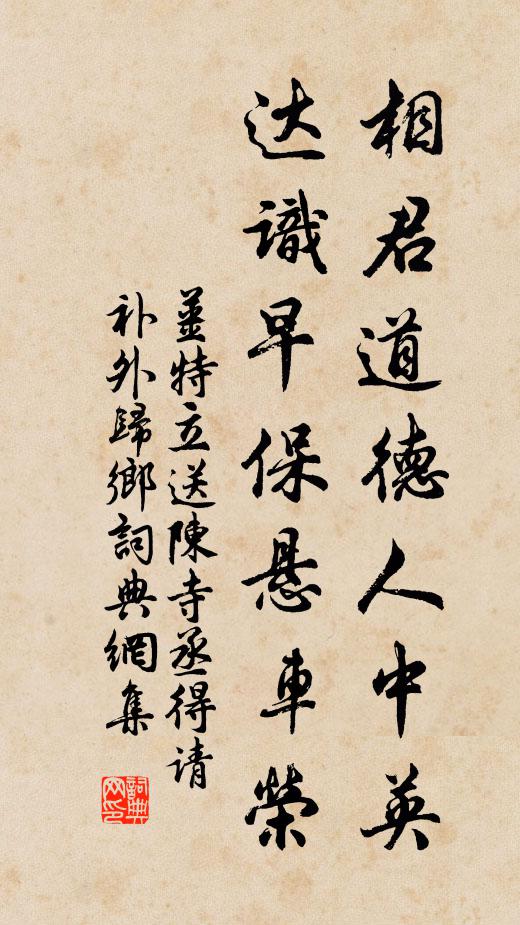 相君道德人中英
达識早保悬車榮
姜特立送陳寺丞得请
补外歸鄉詞典網集
詞典网印